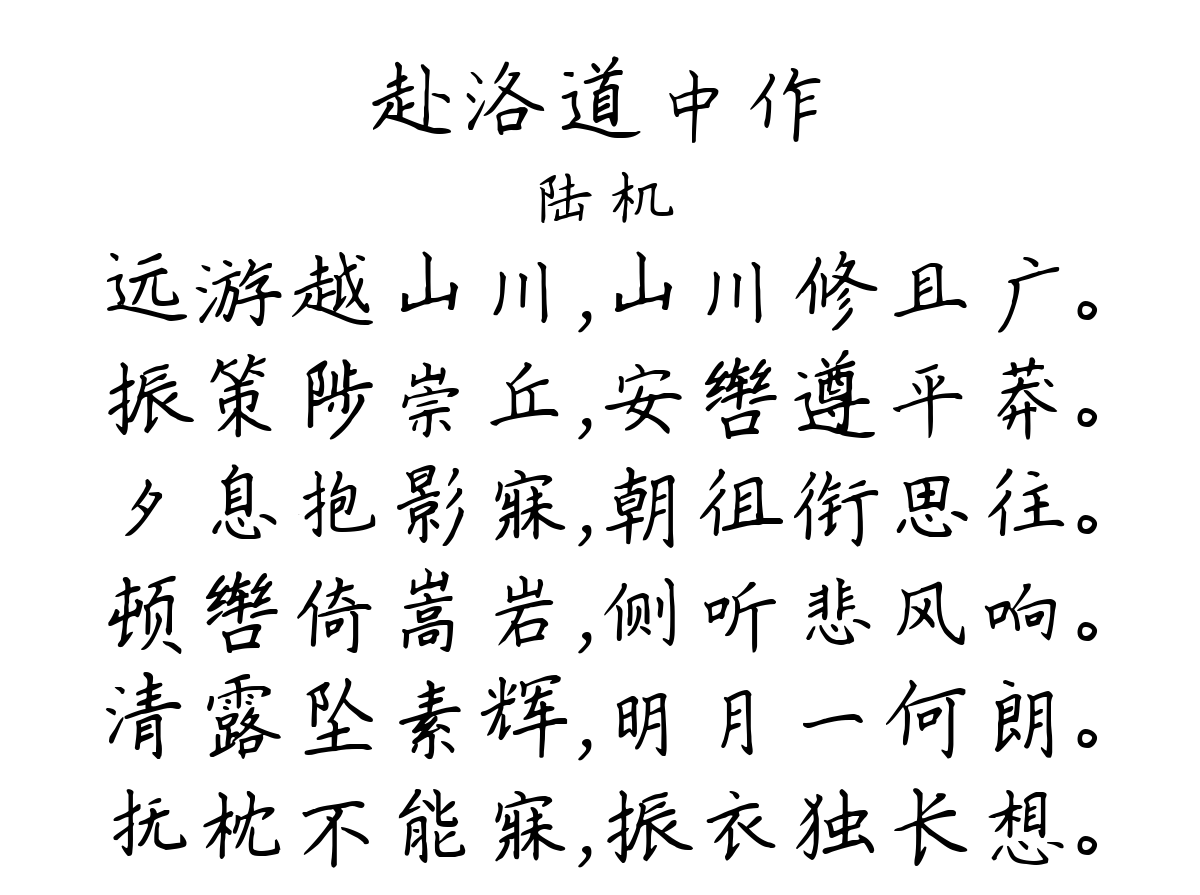 赴洛道中作
陆机
远游越山川,山川修且广。
振策陟崇丘,安辔遵平莽。
夕息抱影寐,朝徂衔思往。
顿辔倚嵩岩,侧听悲风响。
清露坠素辉,明月一何朗。
抚枕不能寐,振衣独长想。